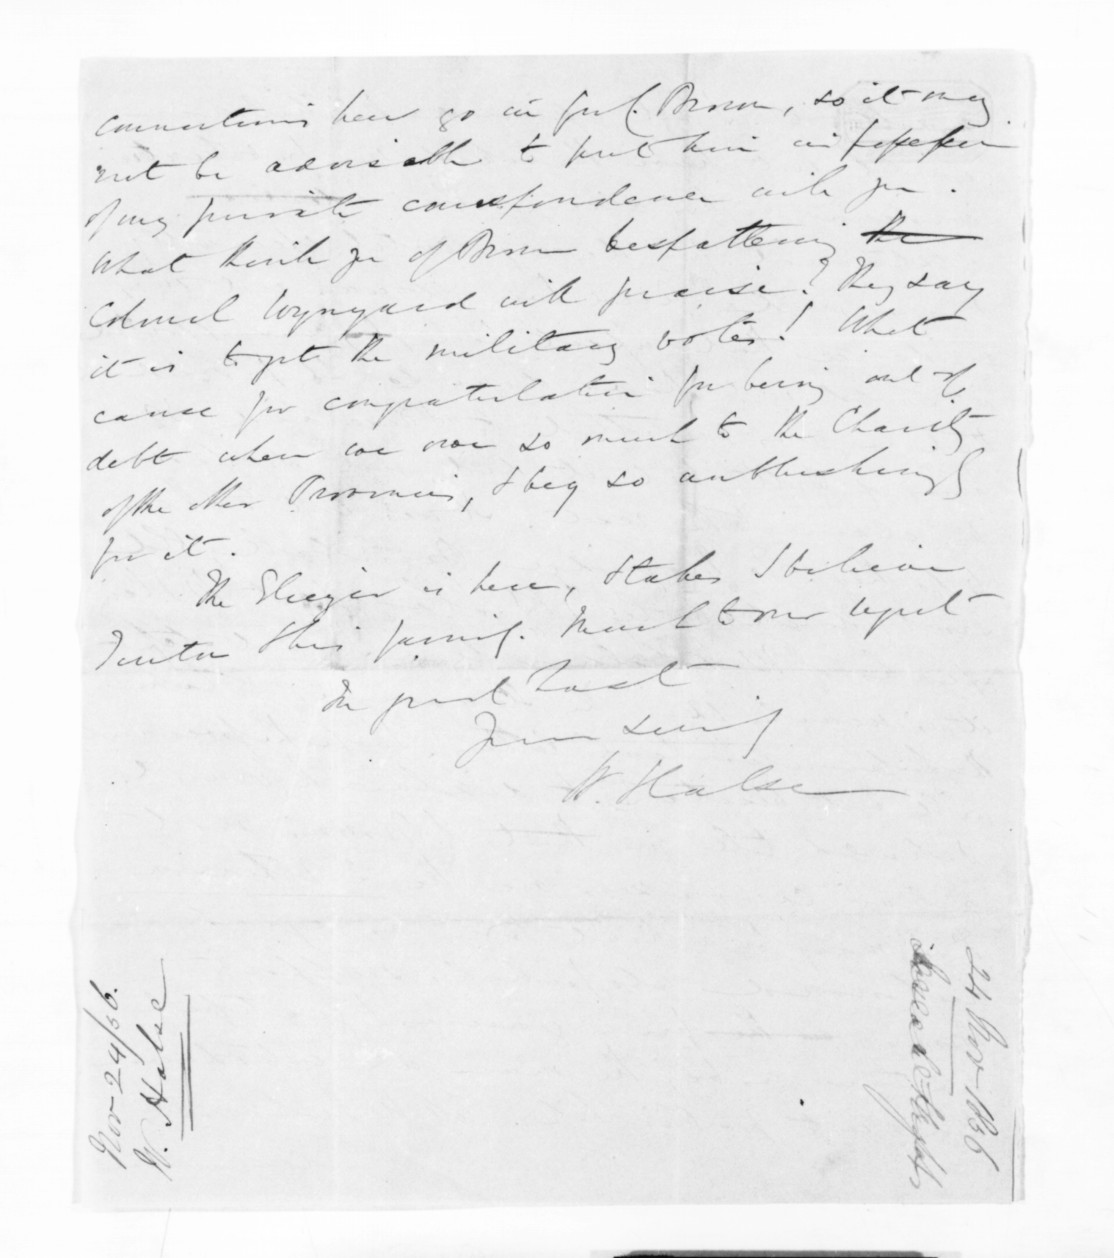 connections here go in for Brown, so it may
not be advisable to put him in possession
of my private correspondence with you.
What think you of Brown bespattering the
Colonel Wynyard with praise? They say
it is to get the military votes! What
cause for congratulation for being out of
debt when we owe so much to the Charity
of the other Provinces, & beg so unblushingly
for it.
The is here, & takes I believe
this family. Much to our regret
In great haste
Yours
W. Halse
Nov 24/56.
W. Halse
24 Nov 1856